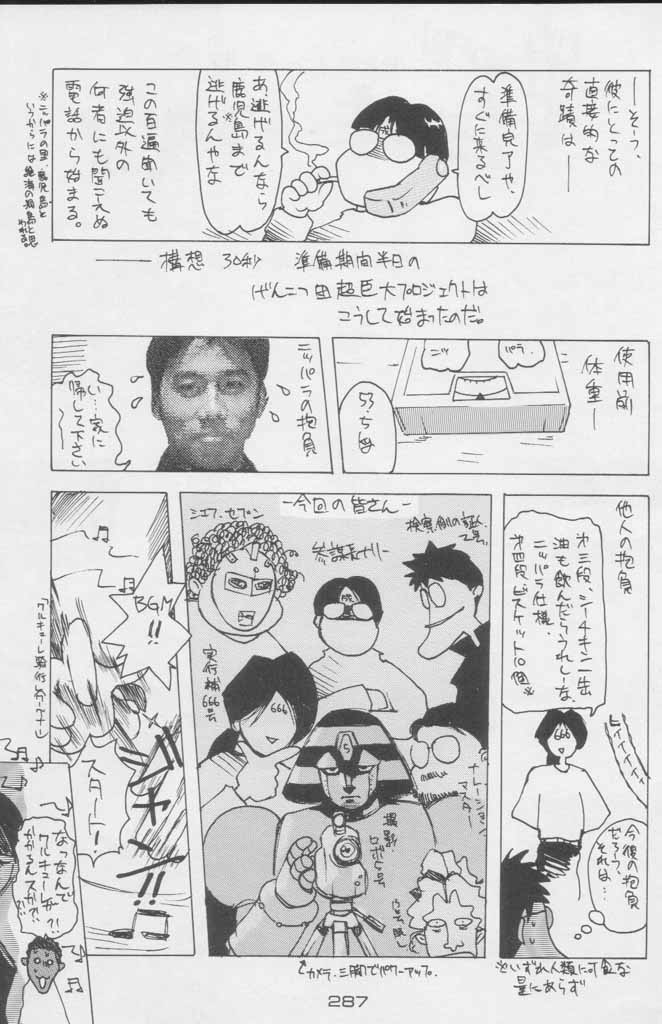 ──そう、
彼にとっての
直接的な
奇蹟は──
準備完了や、
すぐに来るべし
あ、逃げるんなら
鹿児島まで※
逃げるんやな
この百遍聞いても
強迫以外の
何者にも聞こえぬ
電話から始まる。
── 構想 30秒 準備期間半日の
げんこつ団超巨大プロジェクトは
こうして始まったのだ。
使用前
体重─
ニッ
パラ
53.5kg
ニッパラの抱負
い…家に
帰して下さい
他人の抱負
オ三段、シーチキン一缶
油も飲んだらうれしーな、
ニッパラ仕様、
オ四段、ビスケット10個※
666
今後の抱負
だろう、
それは…
※いずれ人類に可食な
量にあらず
─今回の皆さん─
検察側の証人
乙号
参謀長ナリー
シェフ・セブン
実行補
666号
666
ナレーション
マスター
撮影・
ロボ
カメラ、三脚でパワーアップ。
BGM
!!
スタート!
「ワルキューレ騎行(ワーグナー)」
なっなんで
ワルキューレが
かかるんスか?!
287